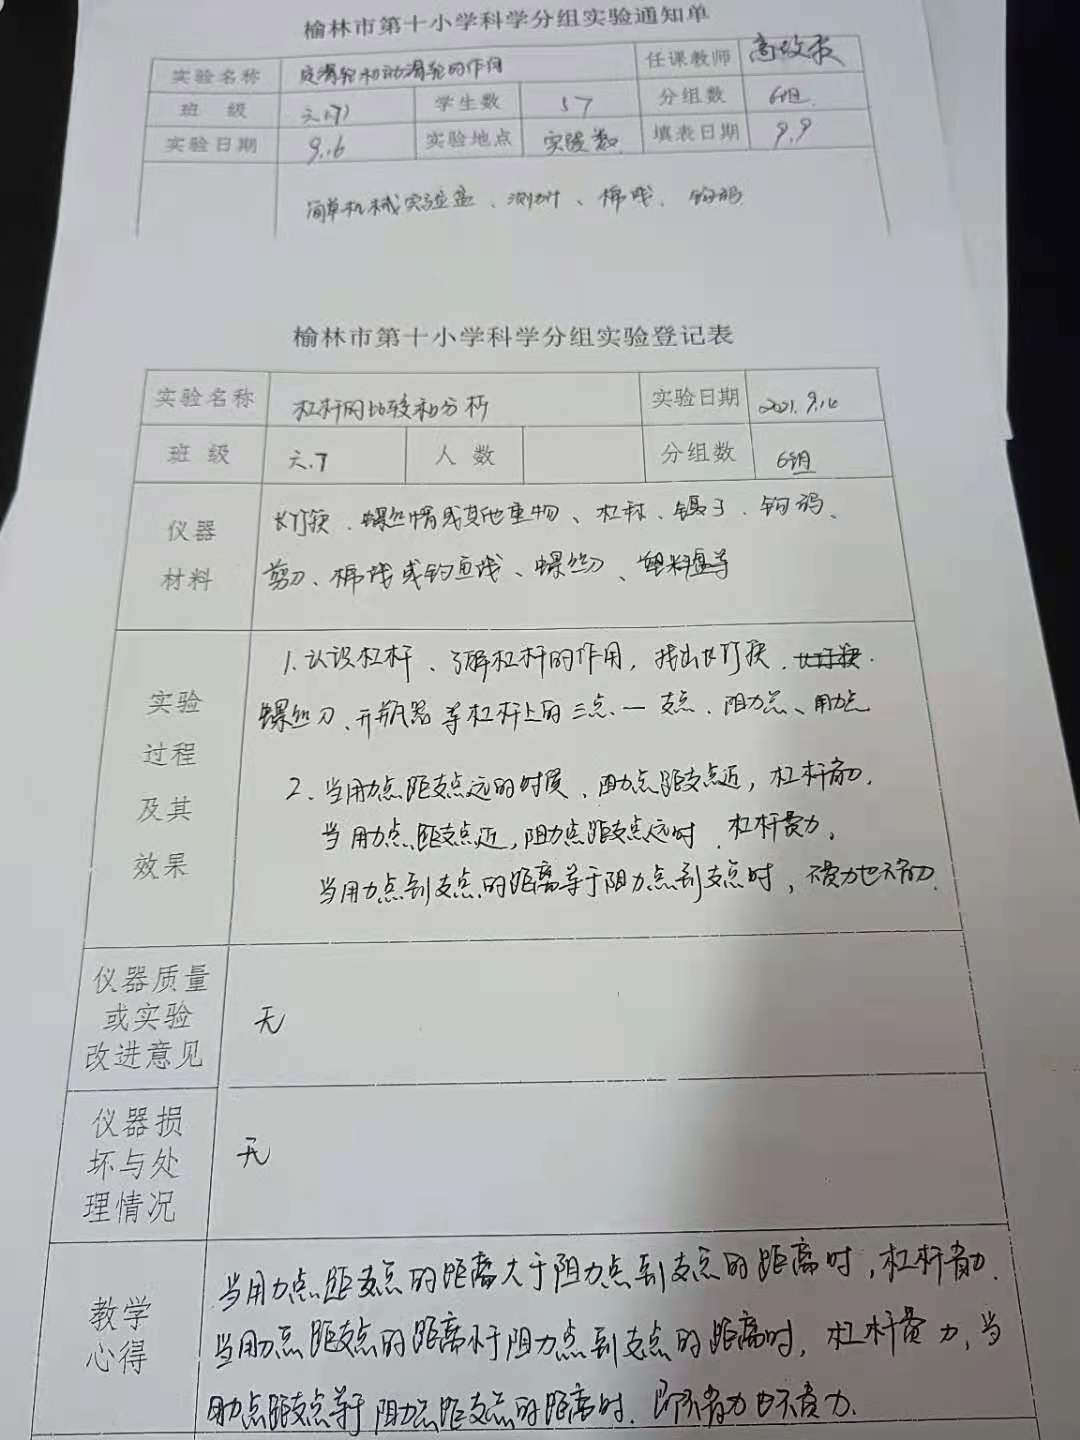 榆林市第十小学科学分组实验通知单
实验名称 定滑轮和动滑轮的作用 任课教师
班 级 六.(7) 学生数 57 分组数 6组.
实验日期 9.6 实验地点 实验室 填表日期 9.9
简单机械实验盒、测力计、棉线、钩码.
榆林市第十小学科学分组实验登记表
实验名称 杠杆的比较和分析 实验日期 2021.9.16
班 级 六.7 人 数 分组数 6组
仪器
材料
长钉锤、螺丝帽或其他重物、杠杆、镊子、钩码、
剪刀、棉线或钓鱼线、螺丝刀、塑料盘等
实验
过程
及其
效果
1.认识杠杆、了解杠杆的作用，找出长钉锤、
螺丝刀、开瓶器等杠杆上的三点一支点、阻力点、用力点
2、当用力点距支点远的时候、阻力点距支点近，杠杆省力.
当用力点距支点近，阻力点距支点远时、杠杆费力，
当用力点到支点的距离等于阻力点到支点时，不费力也不省力.
仪器质量
或实验
改进意见
无
仪器损
坏与处
理情况
无
教学
心得
当用力点距支点的距离大于阻力点到支点的距离时，杠杆省力.
当用力点距支点的距离小于阻力点到支点的距离时，杠杆费力，当
用力点距支点等于阻力点距支点的距离时.即不省力也不费力.